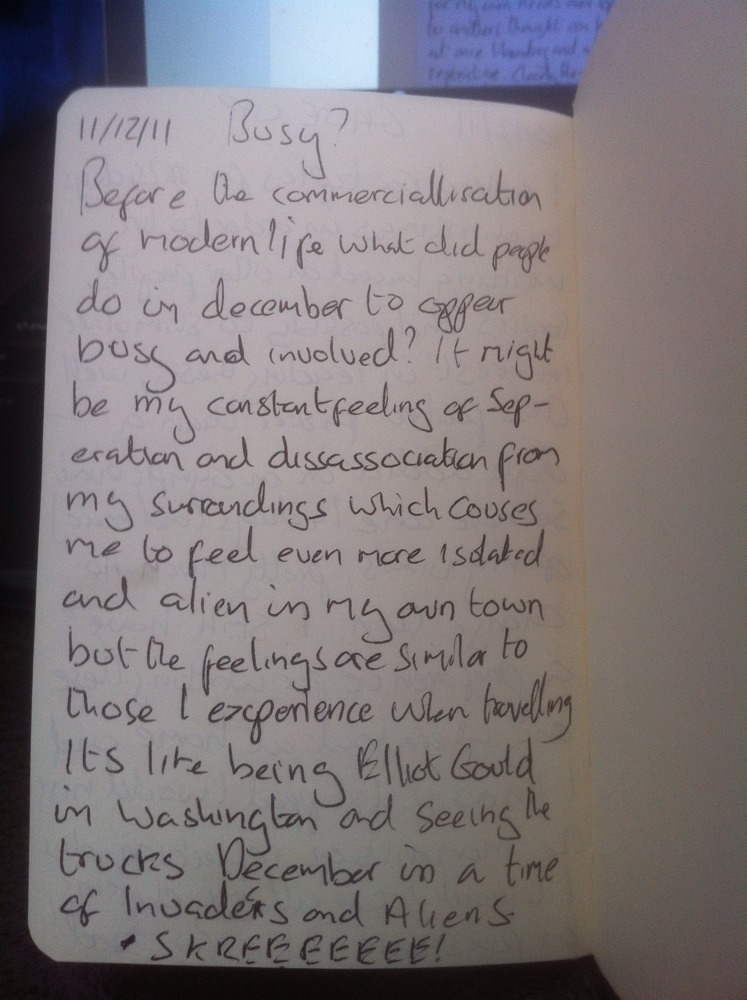 for my own needs
to anothers thought
at one
repending.
11/12/11 Busy?
Before the commerciallisation
of modern life what did people
do in december to appear
busy and involved? It might
be my constant feeling of Sep-
eration and dissassociation from
my surrondings which couses
me to feel even more isolated
and alien in my own town
but the feelings are similar to
those I experience when travelling
Its like being Elliot Gould
in Washington and seeing the
trucks December in a time
of Invaders and Aliens
• SKREEEEEEE!